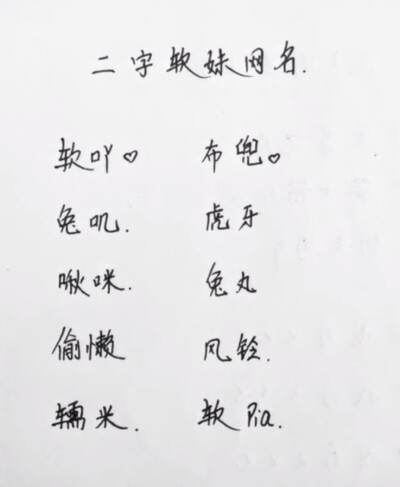 二字软妹网名.
软吖♡ 布兜♡
兔叽. 虎牙
啾咪. 兔丸
偷懒 风铃.
糯米. 软Pia.